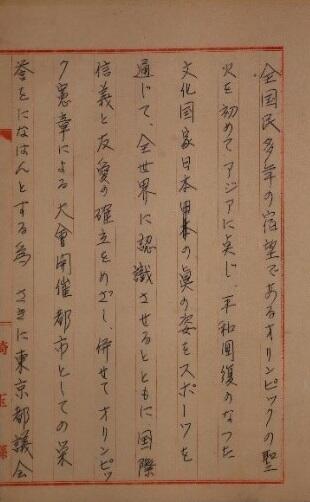 全国民多年の宿望であるオリンピックの聖
火を初めてアジアに点じ、平和回復のなつた
文化国家日本の眞の姿をスポーツを
通じて、全世界に認識させるとともに国際
信義と友愛の確立をめざし、併せてオリンピッ
ク憲章による大會開催都市としての栄
誉をになはんとする為 さきに東京都議会
埼玉縣